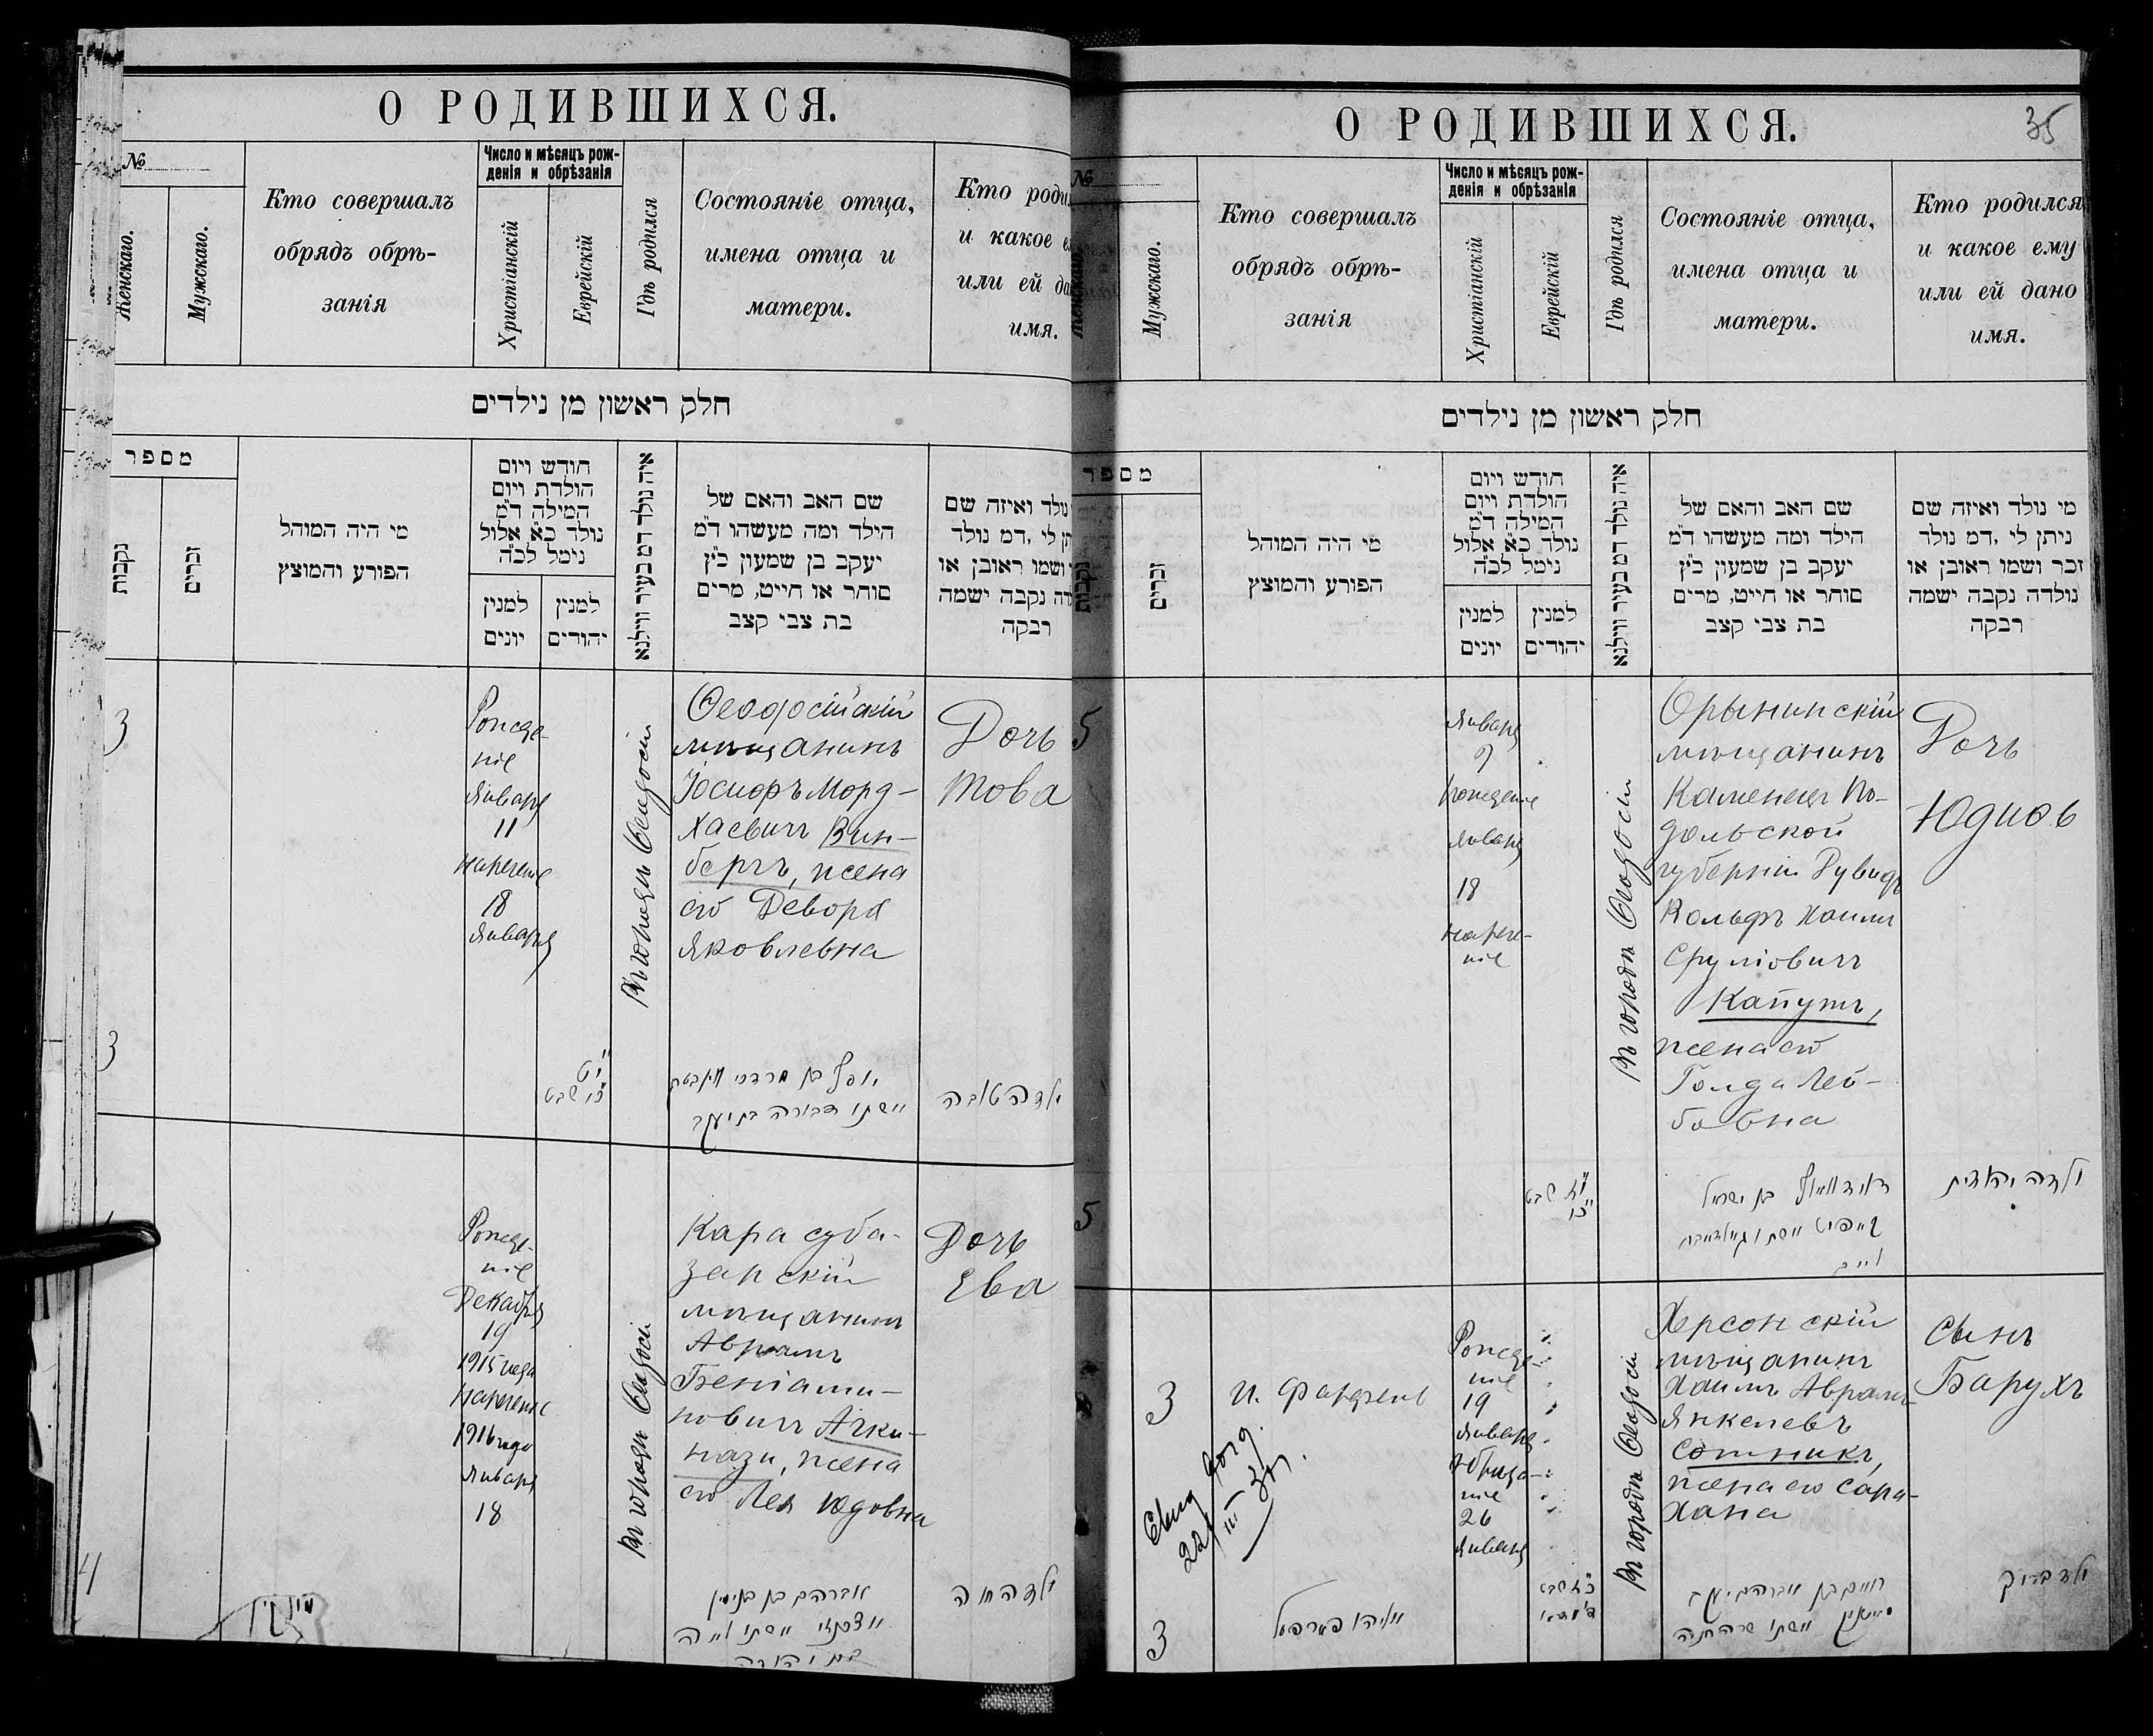 О РОДИВШИХСЯ.
№
Женскаго.
Мужскаго.
Кто совершалъ
обрядъ обрѣ-
занія
Число и мѣсяцъ рож-
денія и обрѣзанія
Христіанскій
Еврейскій
Гдѣ родился
Состояніе отца,
имена отца и
матери.
Кто роди
и какое е
или ей да
имя.
חלק ראשון מן נילדים
מספר
נקבות
זכרים
מי היה המוהל
הפורע והמוצץ
חודש ויום
הולדת ויום
המילה ד"מ
נולד כ"א אלול
נימל לכ"ה
למנין
יונים
למנין
יהודים
איה נולד דמ בעיר ווילנא
שם האב והאם של
הילד ומה מעשהו ד"מ
יעקב בן שמעון כ"ץ
סוחר או חייט, מרים
בת צבי קצב
נולד ואיזה שם
תן לי, דמ נולד
ושמו ראובן או
דה נקבה ישמה
רבקה
3
Рожде-
ніе
Января
11
нареченіе
18
Января
Въ городѣ Ѳеодосіи
Ѳеодосійскій
мѣщанинъ
Іосифъ Морд-
хаевичъ Вин-
бергъ, жена
его Девора
Яковлевна
Дочь
Това
3
י"ט
שבט
יוסף בן מרדכי
ואשתו דבורה בת יעקב
ילדה טובה
Рожде-
ніе
Декабря
19
1915 года
Нареченіе
1916 года
Января
18
Въ городѣ Ѳеодосіи
Карасуба-
зарскій
мѣщанинъ
Аврамъ
Беніами-
новичъ Ачки-
нази, жена
его Лея Юдовна
Дочь
Ева
4
אברהם בן בנימין
אשכנזי ואשתו לאה
בת יהודה
ילדה חוה
О РОДИВШИХСЯ.
35
№
Женскаго.
Мужскаго.
Кто совершалъ
обрядъ обрѣ-
занія
Число и мѣсяцъ рож-
денія и обрѣзанія
Христіанскій
Еврейскій
Гдѣ родился
Состояніе отца,
имена отца и
матери.
Кто родился
и какое ему
или ей дано
имя.
חלק ראשון מן נילדים
מספר
נקבות
זכרים
מי היה המוהל
הפורע והמוצץ
חודש ויום
הולדת ויום
המילה ד"מ
נולד כ"א אלול
נימל לכ"ה
למנין
יונים
למנין
יהודים
איה נולד דמ בעיר ווילנא
שם האב והאם של
הילד ומה מעשהו ד"מ
יעקב בן שמעון כ"ץ
סוחר או חייט, מרים
בת צבי קצב
מי נולד ואיזה שם
ניתן לי, דמ נולד
זכר ושמו ראובן או
נולדה נקבה ישמה
רבקה
5
Января
9
Рожденіе
Января
18
нарече-
ніе
Въ городѣ Ѳеодосіи
Орынинскій
мѣщанинъ
Каменецъ По-
дольской
губерніи Рувидъ
Вольфъ Хаимъ
Сруліовичъ
Капутъ,
жена его
Голда Лей-
бовна
Дочь
Юдиѳь
5
שבט
בן ישראל
קאפוט ואשתו
ילדה יהודית
3
И. Фарфель
Рожде-
ніе
19
Января
Обрѣза-
ніе
26
Января
Въ городѣ Ѳеодосіи
Херсонскій
мѣщанинъ
Хаимъ Аврамъ
Янкелевъ
Сотникъ,
жена его Сара-
Хана
Сынъ
Барухъ
22/III 37.
3
אליהו פארפעל
שבט
חיים בן אברהם יעקב
ואשתו שרה חנה
ילד ברוך